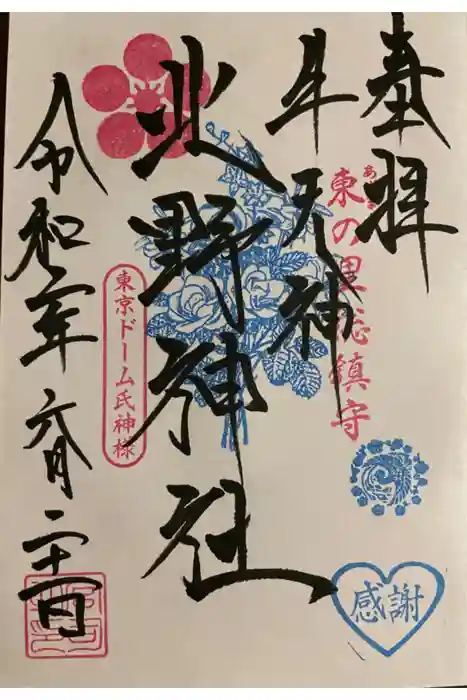 奉拝
東の 鎮守
感謝
牛天神
北野神社
東京ドーム氏神様
令和二年六月二十一日